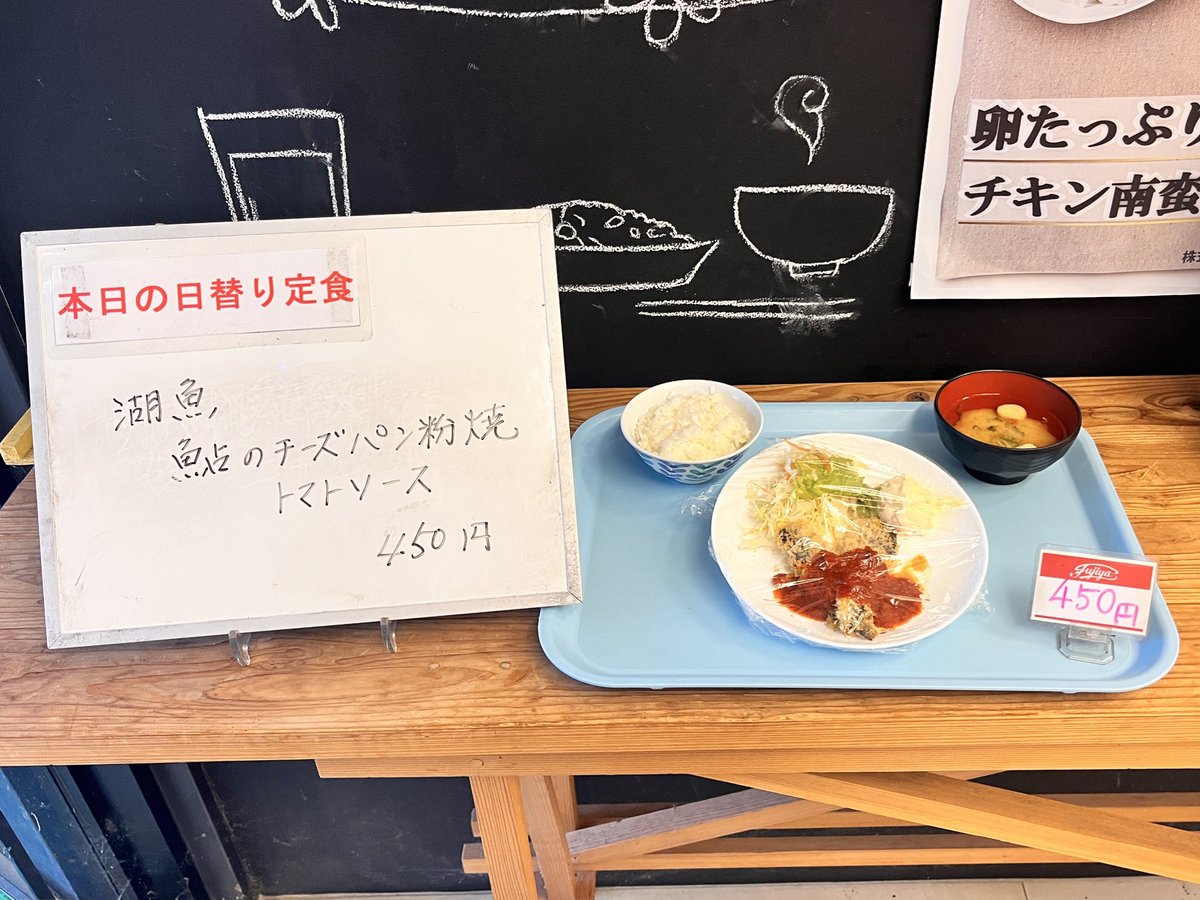 本日の日替り定食
湖魚,
鮎のチーズパン粉焼
トマトソース
450円
卵たっぷり
チキン南蛮
株式
Fujiya
450円